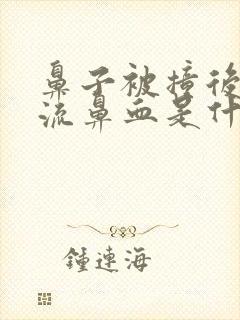 鼻子被撞後
流鼻血是什
鍾連海